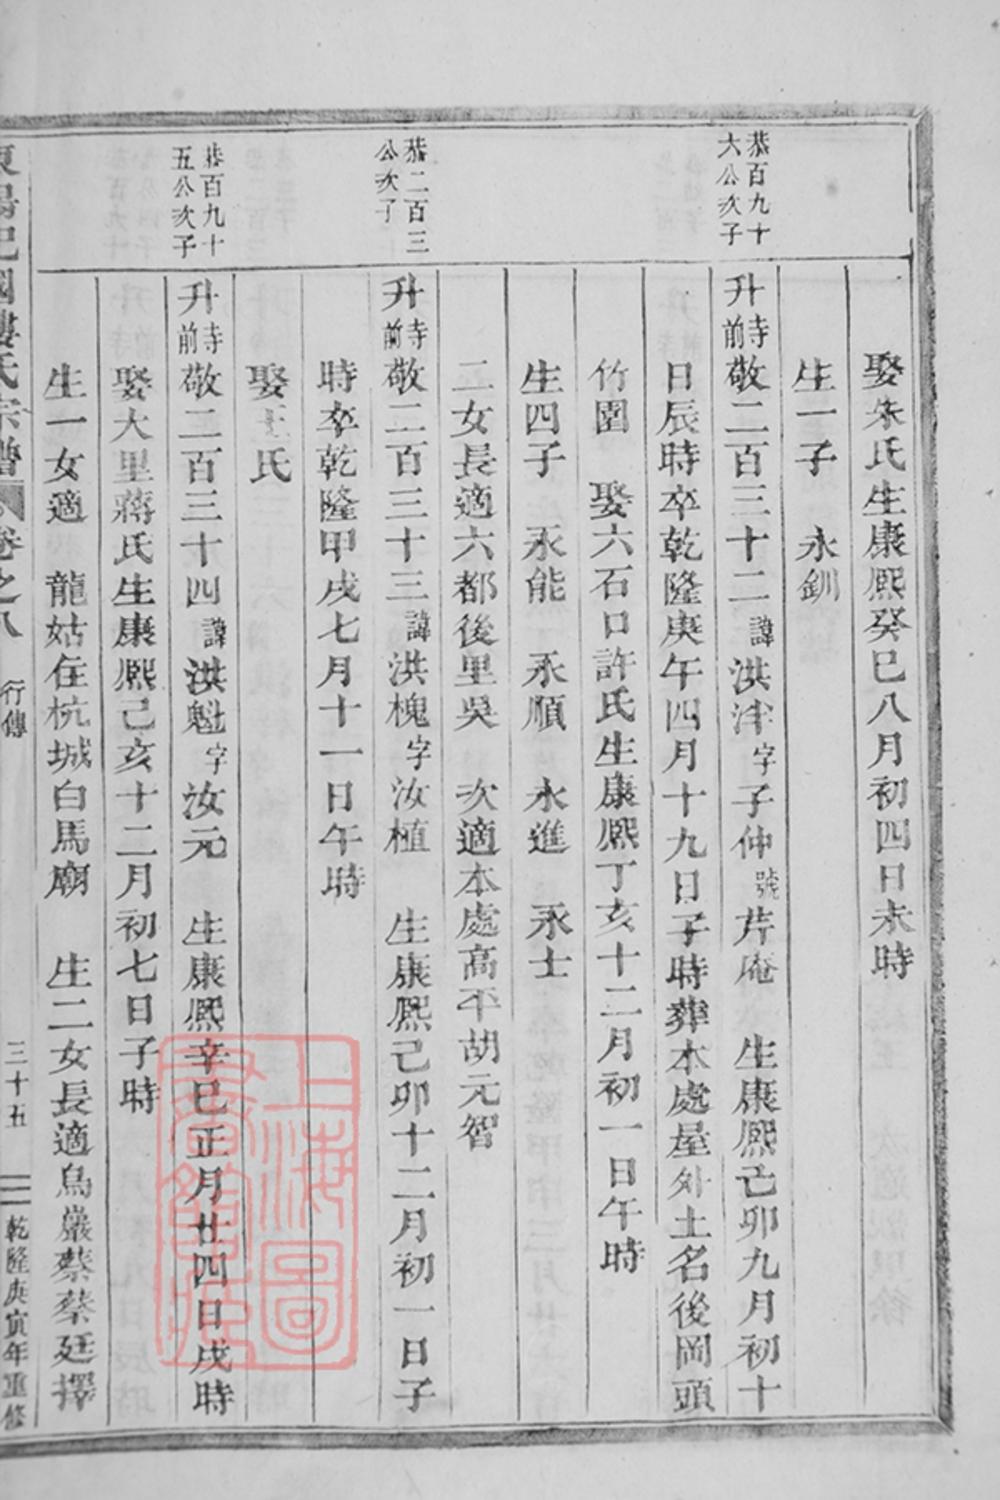 娶朱氏生康熙癸巳八月初四日未時
生一子　永釧
恭百九十
六公次子
升寺前敬二百三十二諱洪津字子仲號芹庵　生康熙己卯九月初十
日辰時卒乾隆庚午四月十九日子時葬本處屋外土名後岡頭
竹園　娶六石口許氏生康熙丁亥十二月初一日午時
生四子　永能　永順　永進　永士
二女長適六都後里吳　次適本處高平胡元智
恭二百三
公次子
升寺前敬二百三十三諱洪槐字汝植　生康熙己卯十二月初一日子
時卒乾隆甲戌七月十一日午時
娶王氏
恭百九十
五公次子
升寺前敬二百三十四諱洪魁字汝元　生康熙辛巳正月廿四日戌時
娶大里蔣氏生康熙己亥十二月初七日子時
生一女適　龍姑住杭城白馬廟　生二女長適鳥巖蔡蔡廷擇
東陽巳國婁氏宗譜　卷之八　行傳　三十五　乾隆庚寅年重修
上海圖書館藏